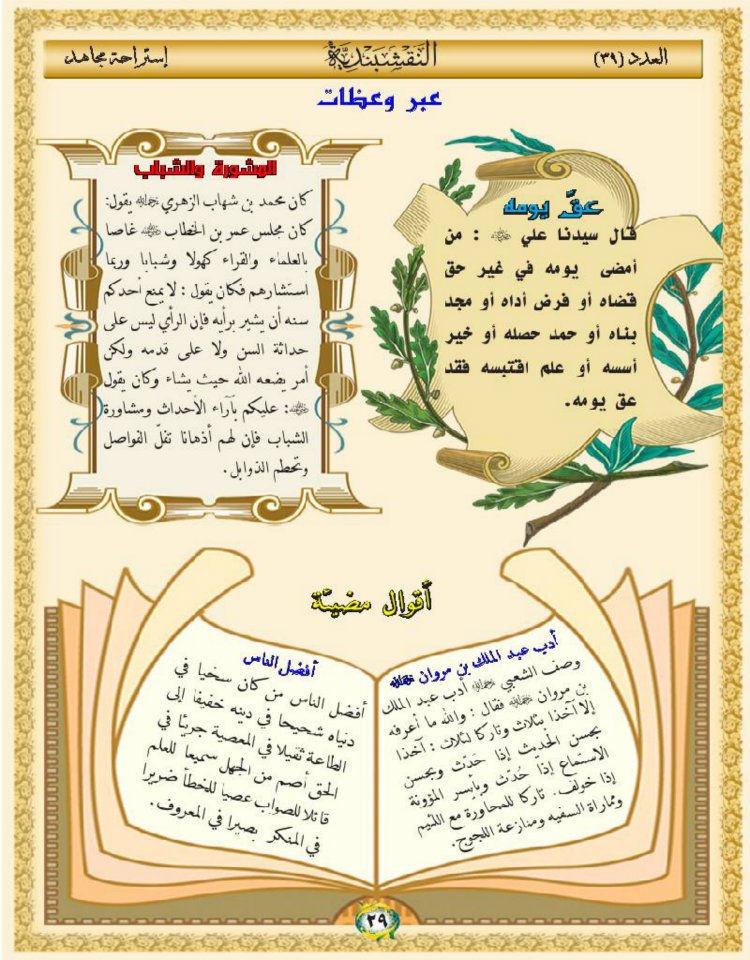 العدد (٣٩)
النَقْشِبَنْدِيَّة
إستراحة مجاهد
عبر وعظات
عقَّ يومه
قال سيدنا علي ﷺ : من
أمضى يومه في غير حق
قضاه أو فرض أداه أو مجد
بناه أو حمد حصله أو خير
أسسه أو علم اقتبسه فقد
عق يومه.
المشورة والشباب
كان محمد بن شهاب الزهري يقول:
كان مجلس عمر بن الخطاب غاصا
بالعلماء والقراء كهولا وشبابا وربما
استشارهم فكان يقول : لا يمنع أحدكم
سنه أن يشير برأيه فإن الرأي ليس على
حداثة السن ولا على قدمه ولكن
أمر يضعه الله حيث يشاء وكان يقول
: عليكم بآراء الأحداث ومشاورة
الشباب فإن لهم أذهانا تفلّ الفواصل
وتحطم الذوابل.
أقوال مضيئة
أدب عبد الملك بن مروان
وصف الشعبي أدب عبد الملك
بن مروان فقال : والله ما أعرفه
إلا آخذا بثلاث وتاركا لثلاث : آخذا
بحسن الحديث إذا حَدَّث وبحسن
الاستماع إذا حُدّث وبأيسر المؤونة
إذا خولف. تاركا للمحاورة مع اللئيم
ومماراة السفيه ومنازعة اللجوج.
أفضل الناس
أفضل الناس من كان سخيا في
دنياه شحيحا في دينه خفيفا إلى
الطاعة ثقيلا في المعصية جريئا في
الحق أصم من الجهل سميعا للعلم
قائلا للصواب عصيا للخطأ ضريرا
في المنكر بصيرا في المعروف.
٢٩